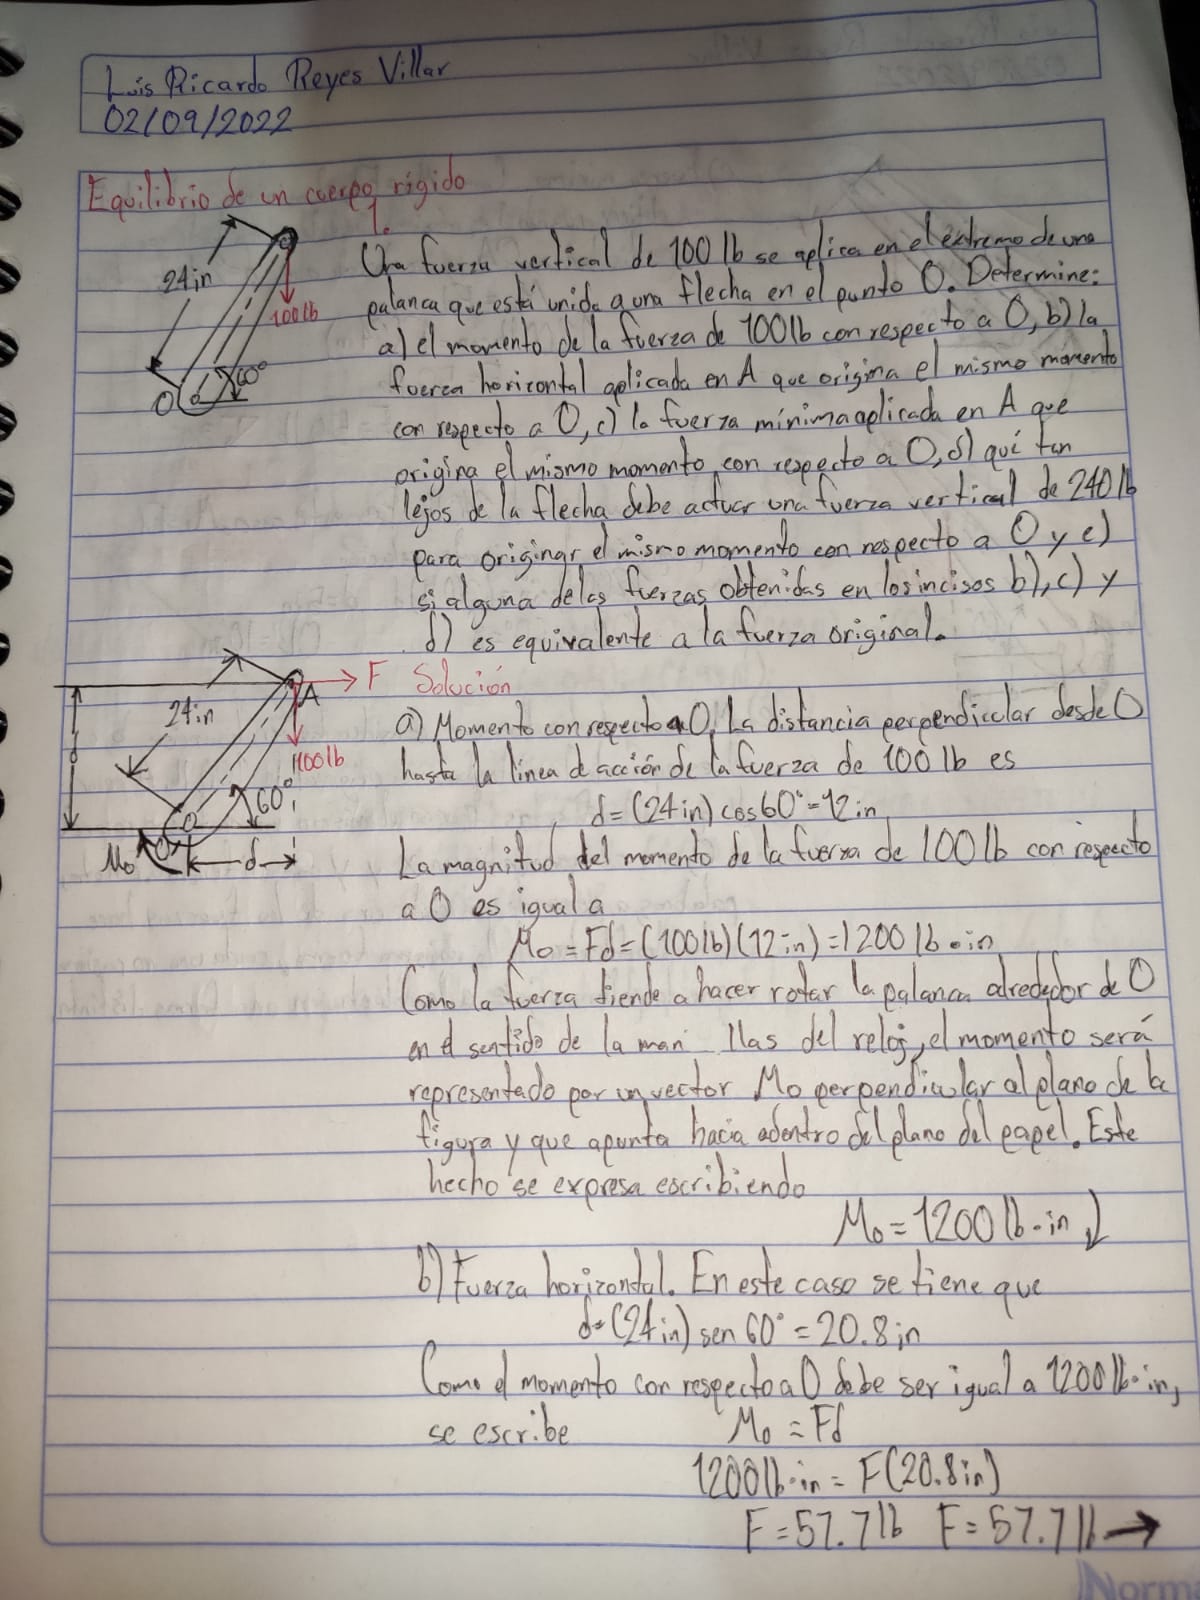 Luis Ricardo Reyes Villar
02/09/2022
Equilibrio de un cuerpo rígido
1.
24in
100lb
60°
O
Una fuerza vertical de 100 lb se aplica en el extremo de una
palanca que está unida a una flecha en el punto O. Determine:
a) el momento de la fuerza de 100lb con respecto a O, b) la
fuerza horizontal aplicada en A que origina el mismo momento
con respecto a O, c) la fuerza mínima aplicada en A que
origina el mismo momento con respecto a O, d) qué tan
lejos de la flecha debe actuar una fuerza vertical de 240 lb
para originar el mismo momento con respecto a O y e)
si alguna de las fuerzas obtenidas en los incisos b), c) y
d) es equivalente a la fuerza original.
24in
A
F
100lb
60°
O
d
Mo
d
Solución
a) Momento con respecto a O. La distancia perpendicular desde O
hasta la línea d acción de la fuerza de 100 lb es
d=(24in) cos60°=12in
La magnitud del momento de la fuerza de 100 lb con respecto
a O es igual a
Mo=Fd=(100lb)(12in)=1200 lb·in
Como la fuerza tiende a hacer rotar la palanca alrededor de O
en el sentido de la man llas del reloj, el momento será
representado por un vector Mo perpendicular al plano de la
figura y que apunta hacia adentro del plano del papel. Este
hecho se expresa escribiendo
Mo=1200 lb·in ↓
b) Fuerza horizontal. En este caso se tiene que
d=(24in) sen 60°=20.8in
Como el momento con respecto a O debe ser igual a 1200 lb·in,
se escribe Mo=Fd
1200lb·in=F(20.8in)
F=57.7lb F=57.7lb→
Norma